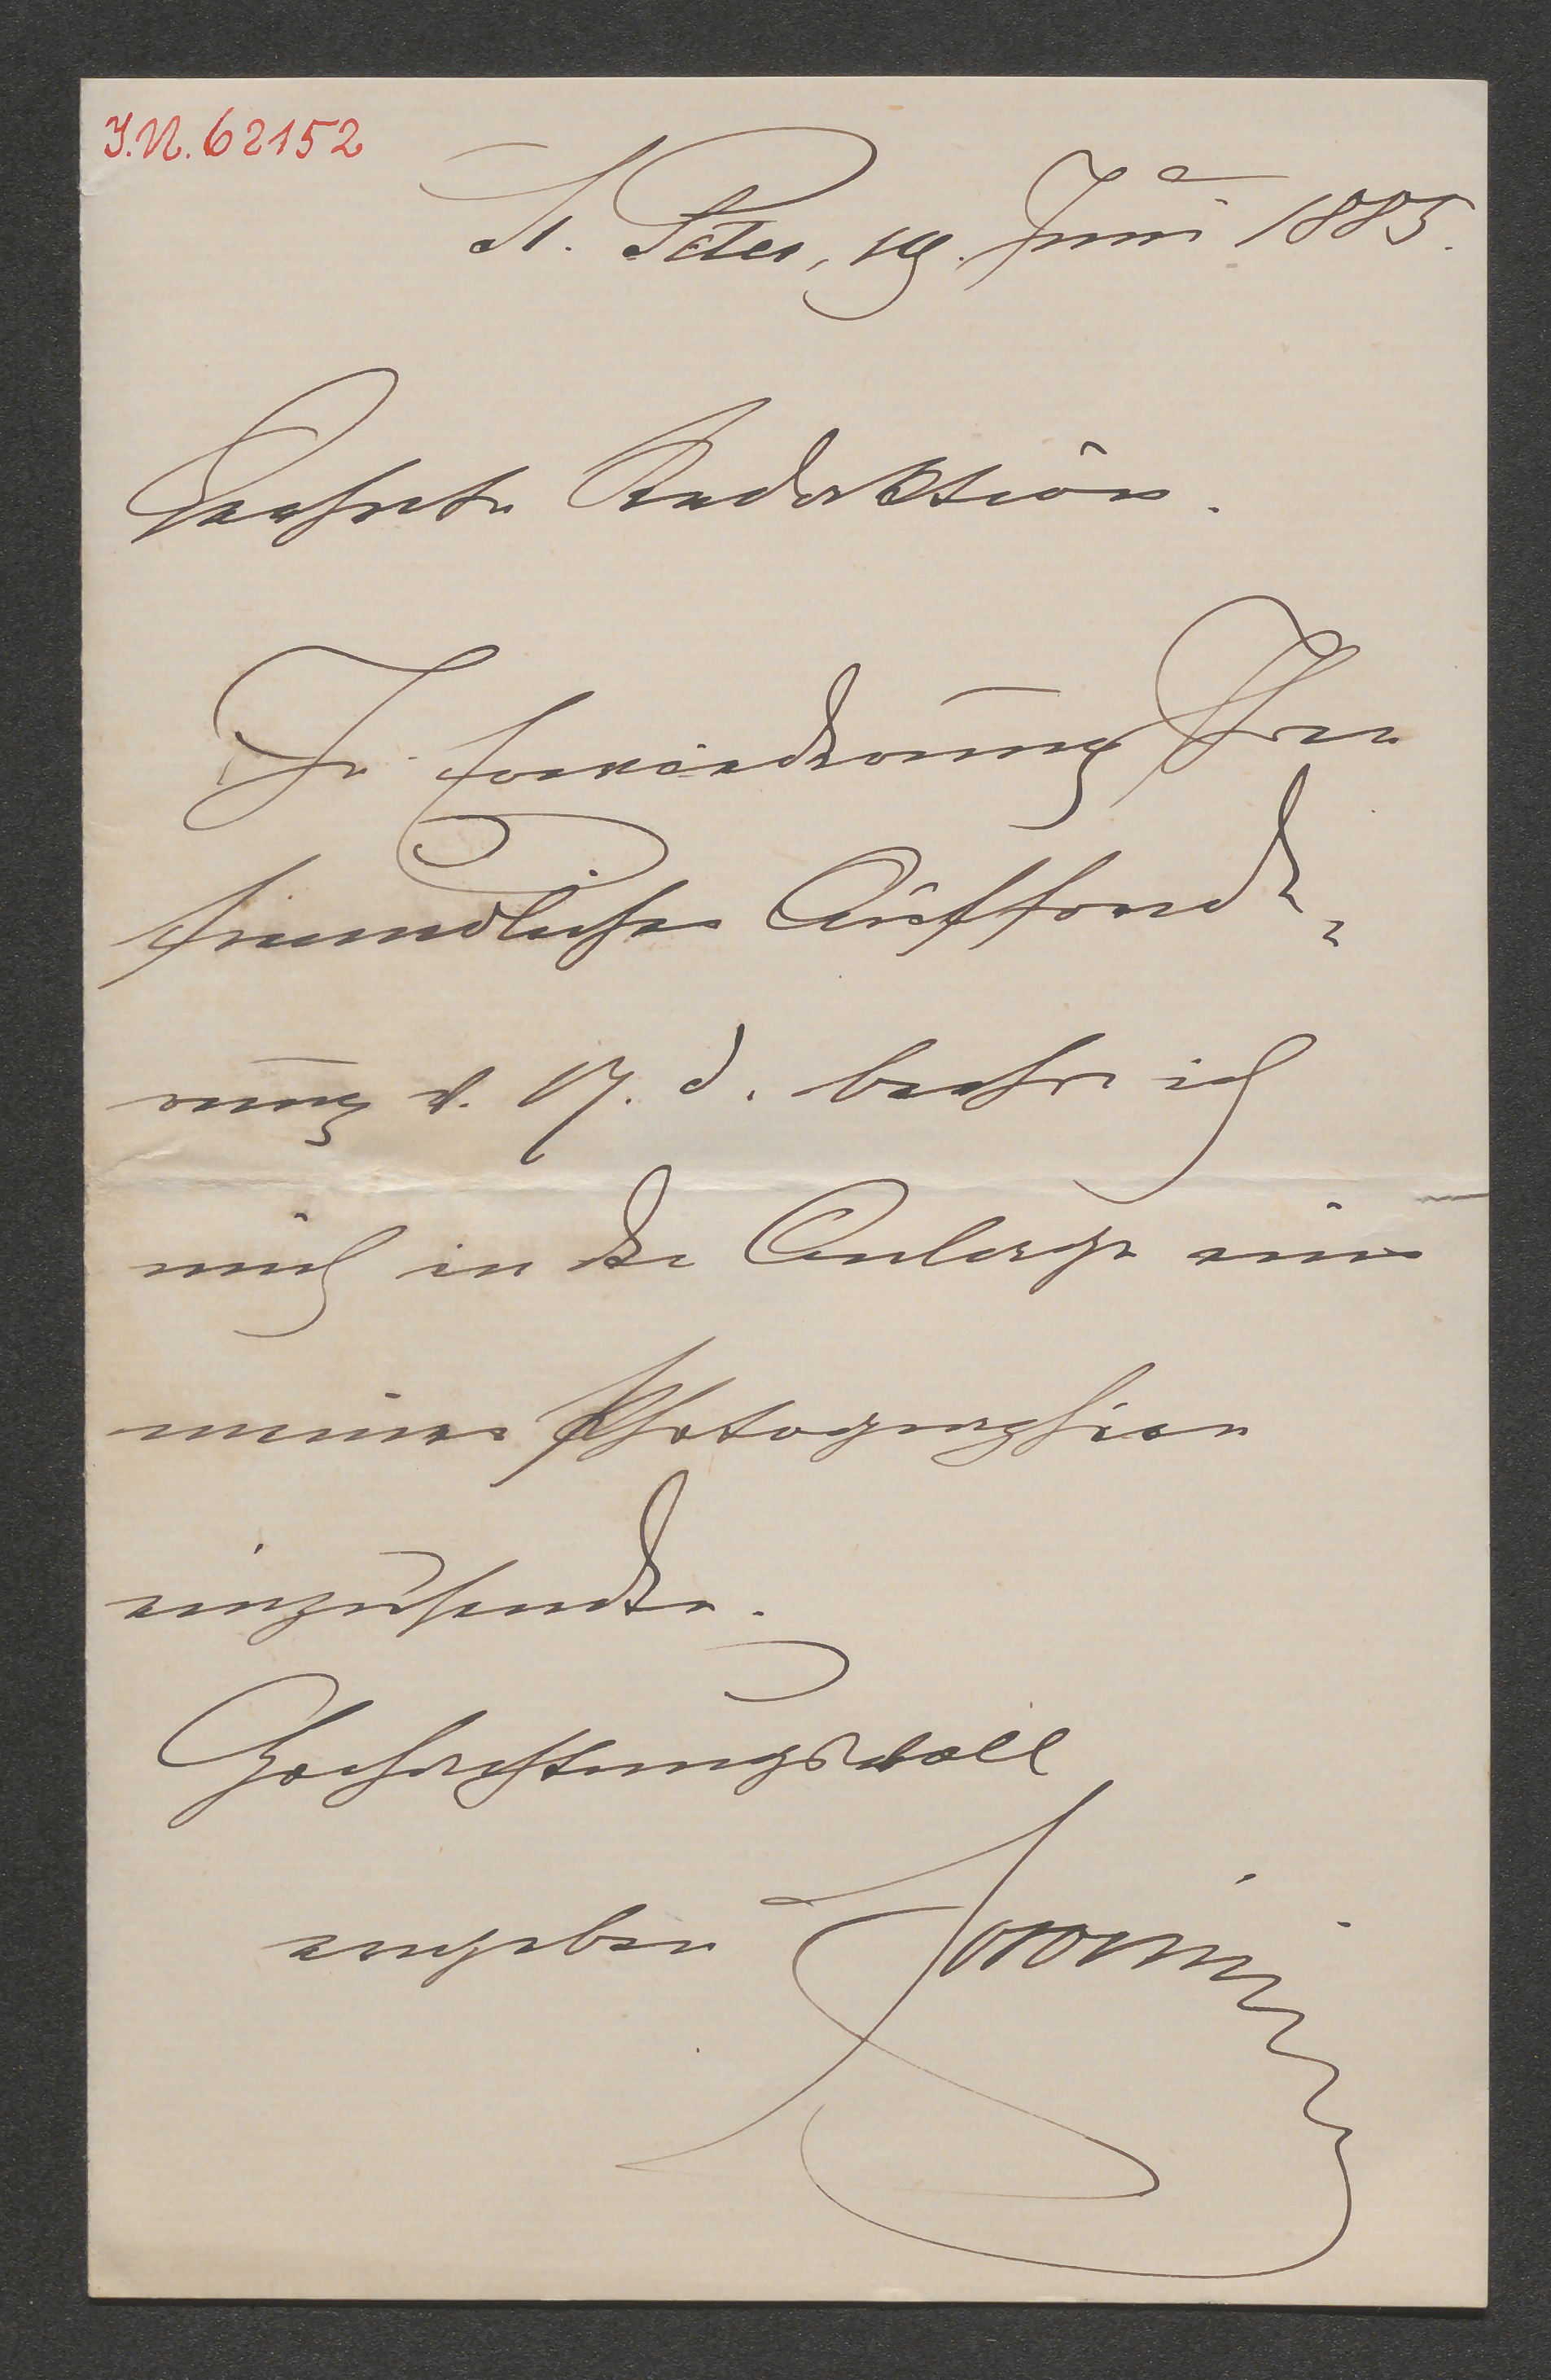 I.N. 62152
St. Peter, 19. Juni 1885.
Geehrte Redaktion.
In Erwiederung Ihrer
freundlichen Aufforde-
rung v. 17. d. beehre ich
mich in der Anlage eine
meiner Photographien
einzusenden.
Hochachtungsvoll
ergeben